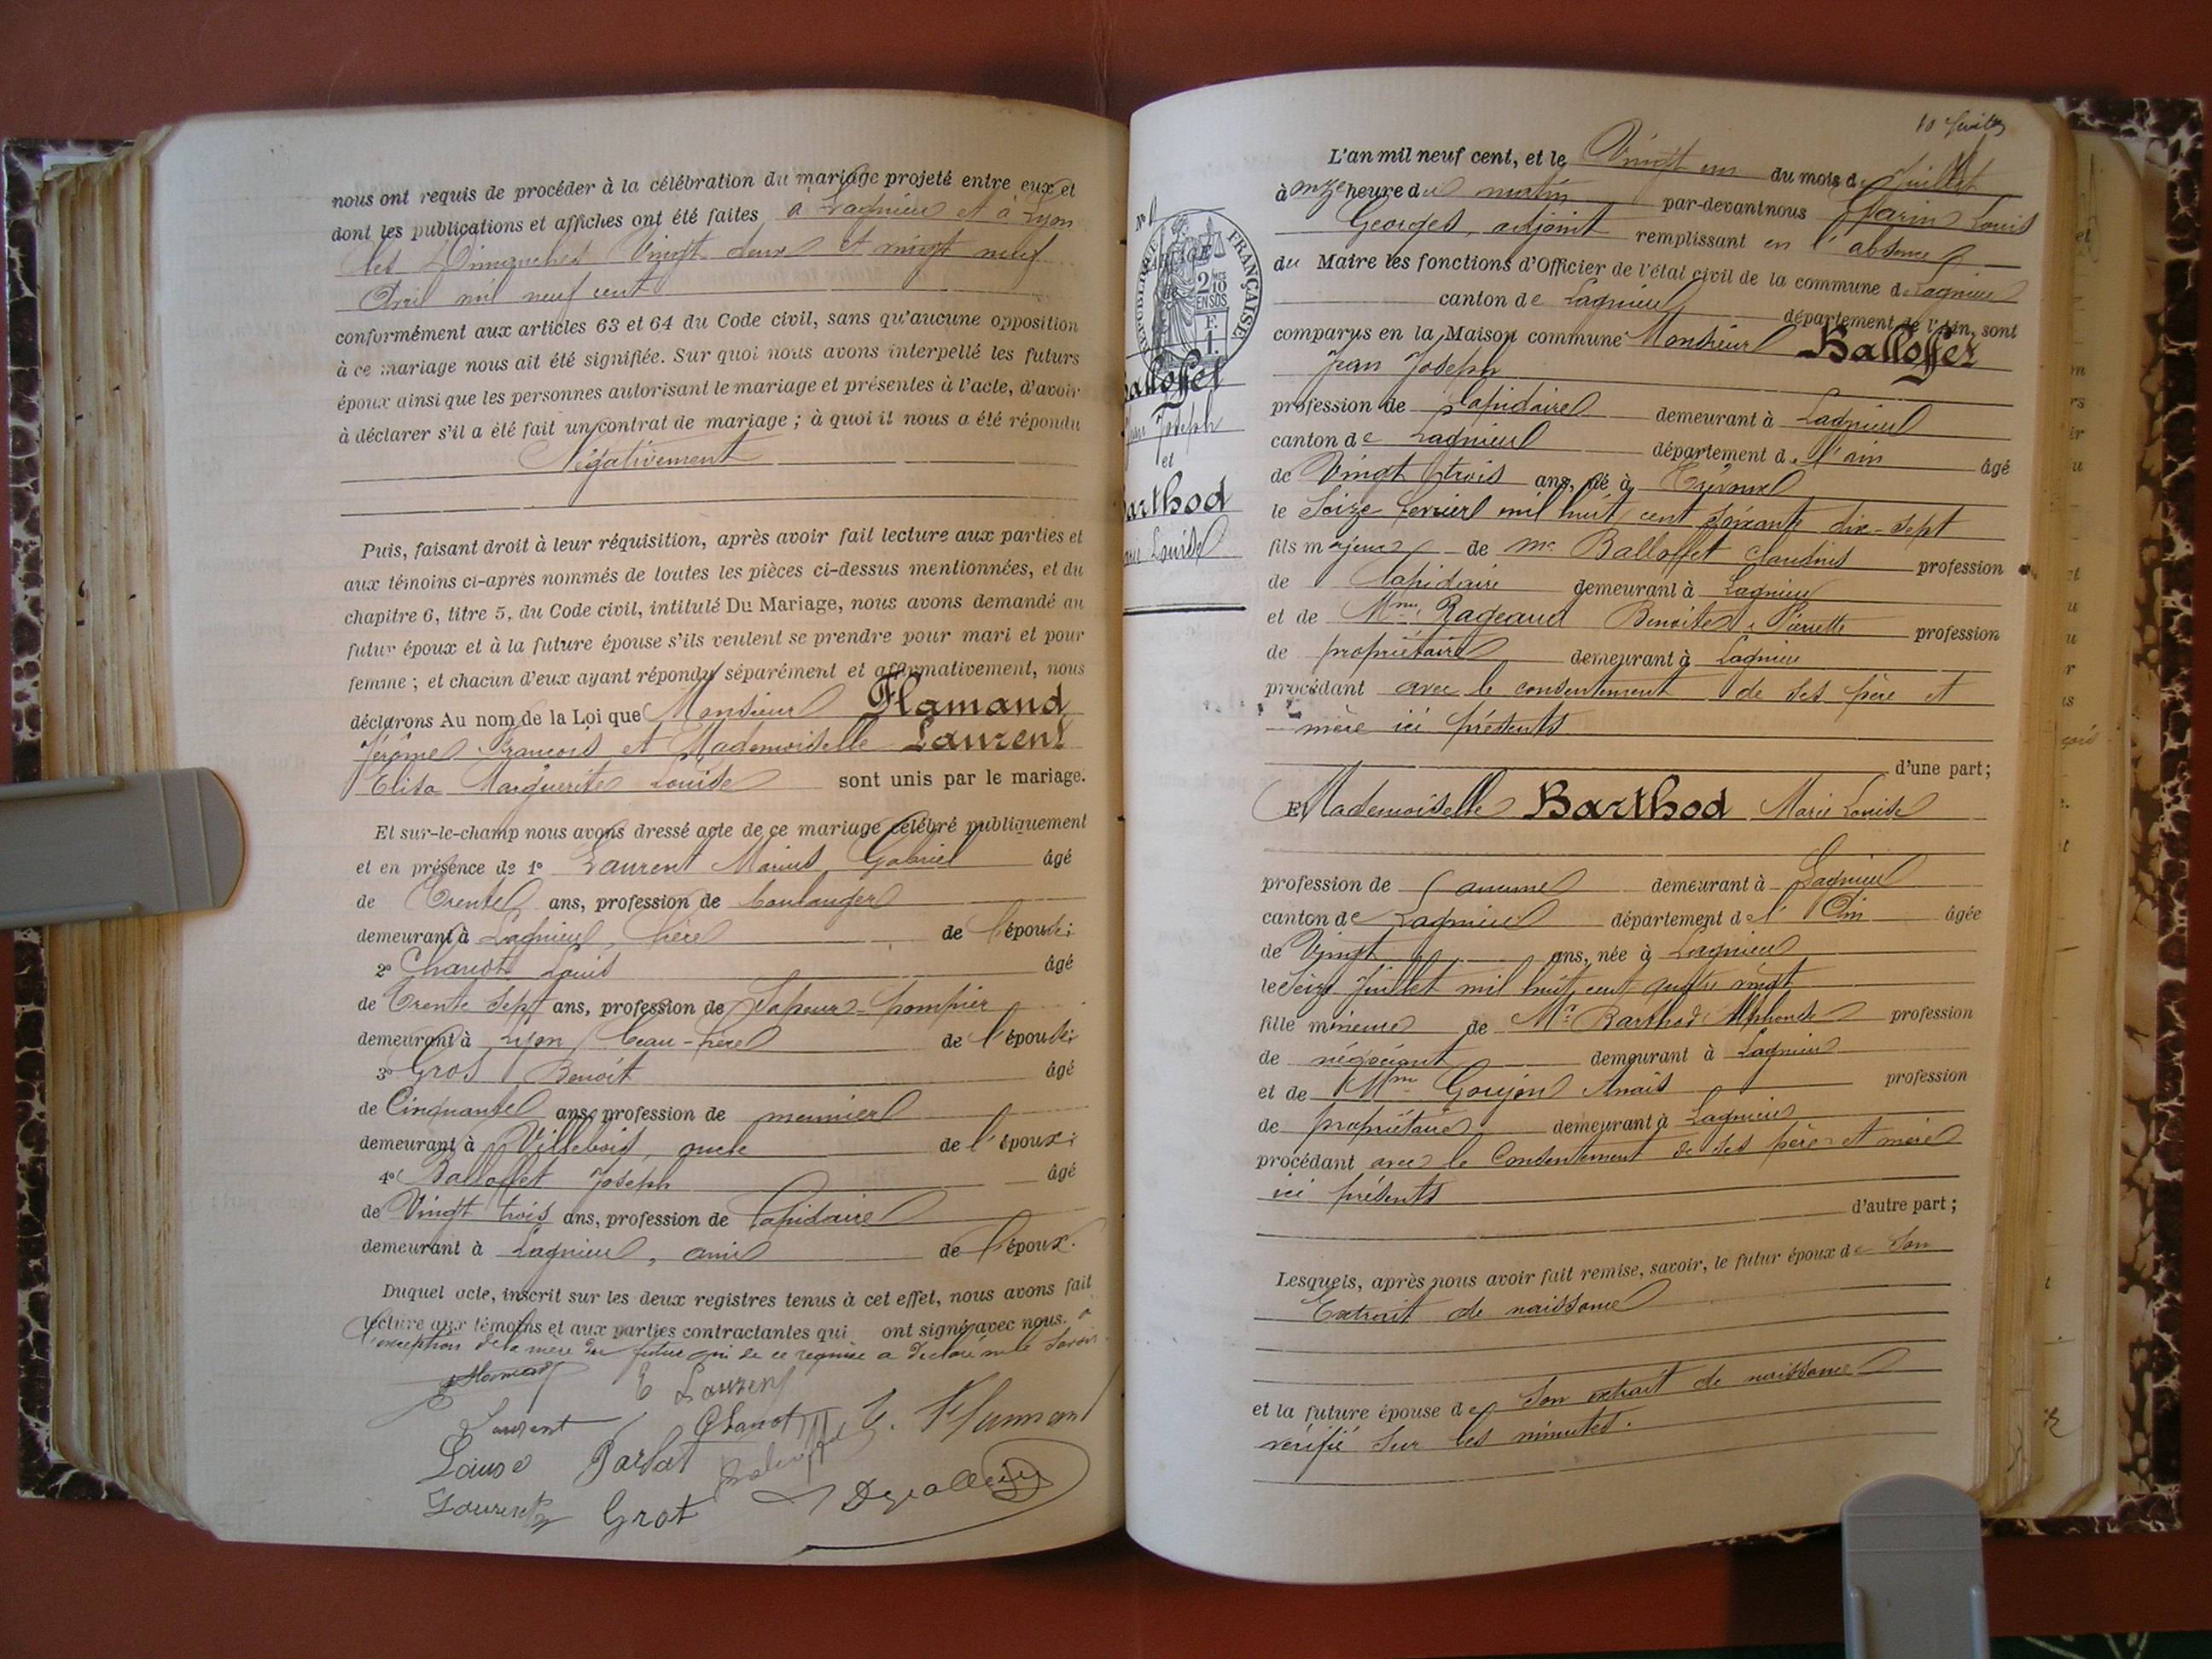 nous ont requis de procéder à la célébration du mariage projeté entre eux et
dont les publications et affiches ont été faites à Lagnieu et à Lyon
les Dimanches Vingt deux et vingt neuf
Avril mil neuf cent
conformément aux articles 63 et 64 du Code civil, sans qu'aucune opposition
à ce mariage nous ait été signifiée. Sur quoi nous avons interpellé les futurs
époux ainsi que les personnes autorisant le mariage et présentes à l'acte, d'avoir
à déclarer s'il a été fait un contrat de mariage ; à quoi il nous a été répondu
Négativement
Puis, faisant droit à leur réquisition, après avoir fait lecture aux parties et
aux témoins ci-après nommés de toutes les pièces ci-dessus mentionnées, et du
chapitre 6, titre 5, du Code civil, intitulé Du Mariage, nous avons demandé au
futur époux et à la future épouse s'ils veulent se prendre pour mari et pour
femme ; et chacun d'eux ayant répondu séparément et affirmativement, nous
déclarons Au nom de la Loi que Monsieur Flamand
Jérôme François et Mademoiselle Laurent
Elisa Marguerite Louise sont unis par le mariage.
Et sur-le-champ nous avons dressé acte de ce mariage célébré publiquement
et en présence de 1° Laurent Marius Gabriel âgé
de Trente ans, profession de boulanger
demeurant à Lagnieu, frère de l'épouse;
2° Chanot Louis âgé
de Trente sept ans, profession de Sapeur-pompier
demeurant à Lyon beau-frère de l'épouse;
3° Gros Benoit âgé
de Cinquante ans, profession de meunier
demeurant à Villebois, oncle de l'époux;
4° Balloffet Joseph âgé
de Vingt trois ans, profession de lapidaire
demeurant à Lagnieu, ami de l'époux.
Duquel acte, inscrit sur les deux registres tenus à cet effet, nous avons fait
lecture aux témoins et aux parties contractantes qui ont signé avec nous. à
l'exception de la mère du futur qui de ce requise a déclaré ne le savoir
E Laurent
Laurent Chanot
Louise
Laurent Grot
10 feuillet
L'an mil neuf cent, et le Vingt un du mois de Juillet
à onze heure du matin par-devant nous Garin Louis
Georges, adjoint remplissant en l'absence
du Maire les fonctions d'Officier de l'état civil de la commune de Lagnieu
canton de Lagnieu département de l'Ain, sont
comparus en la Maison commune Monsieur Balloffet
Jean Joseph
profession de lapidaire demeurant à Lagnieu
canton de Lagnieu département de l'ain âgé
de Vingt trois ans, né à Trévoux
le Seize février mil huit cent soixante dix-sept
fils majeur de Mr Balloffet Claudius profession
de lapidaire demeurant à Lagnieu
et de Mme Rageaud Benoite Pierrette profession
de propriétaire demeurant à Lagnieu
procédant avec le consentement de ses père et
mère ici présents
d'une part;
Et Mademoiselle Barthod Marie Louise
profession de aucune demeurant à Lagnieu
canton de Lagnieu département de l'Ain âgée
de Vingt ans, née à Lagnieu
le Seize Juillet mil huit cent quatre vingt
fille mineure de Mr Barthod Alphonse profession
de négociant demeurant à Lagnieu
et de Mme Goujon Anaïs profession
de propriétaire demeurant à Lagnieu
procédant avec le Consentement de ses père et mère
ici présents
d'autre part;
Lesquels, après nous avoir fait remise, savoir, le futur époux de Son
Extrait de naissance
et la future épouse de Son extrait de naissance
vérifié sur les minutes.
RÉPUBLIQUE FRANÇAISE
2 10es EN SUS
F.
1.
Balloffet
Jean Joseph
et
Barthod
Marie Louise